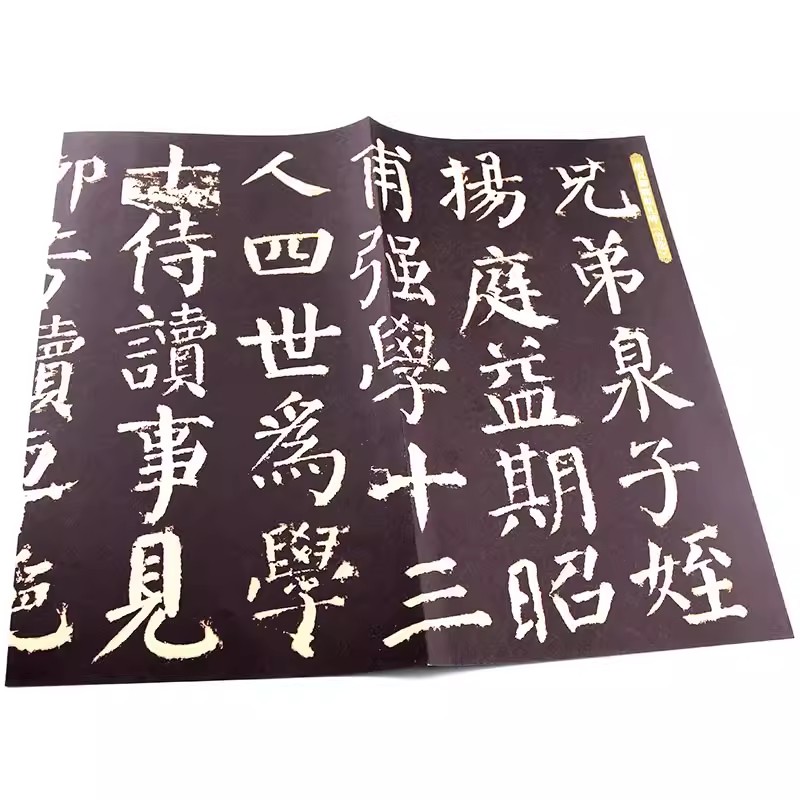 兄弟泉子姪
揚庭益期昭
甫强學十三
人四世爲學
士侍讀事見